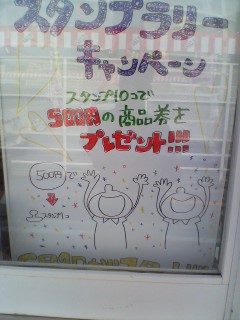 スタンプラリー
キャンペーン
スタンプ10コで
500円の商品券を
プレゼント!!!
500円で